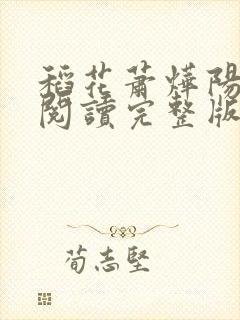 稻花蕭燁陽
閱讀完整版
荀志堅